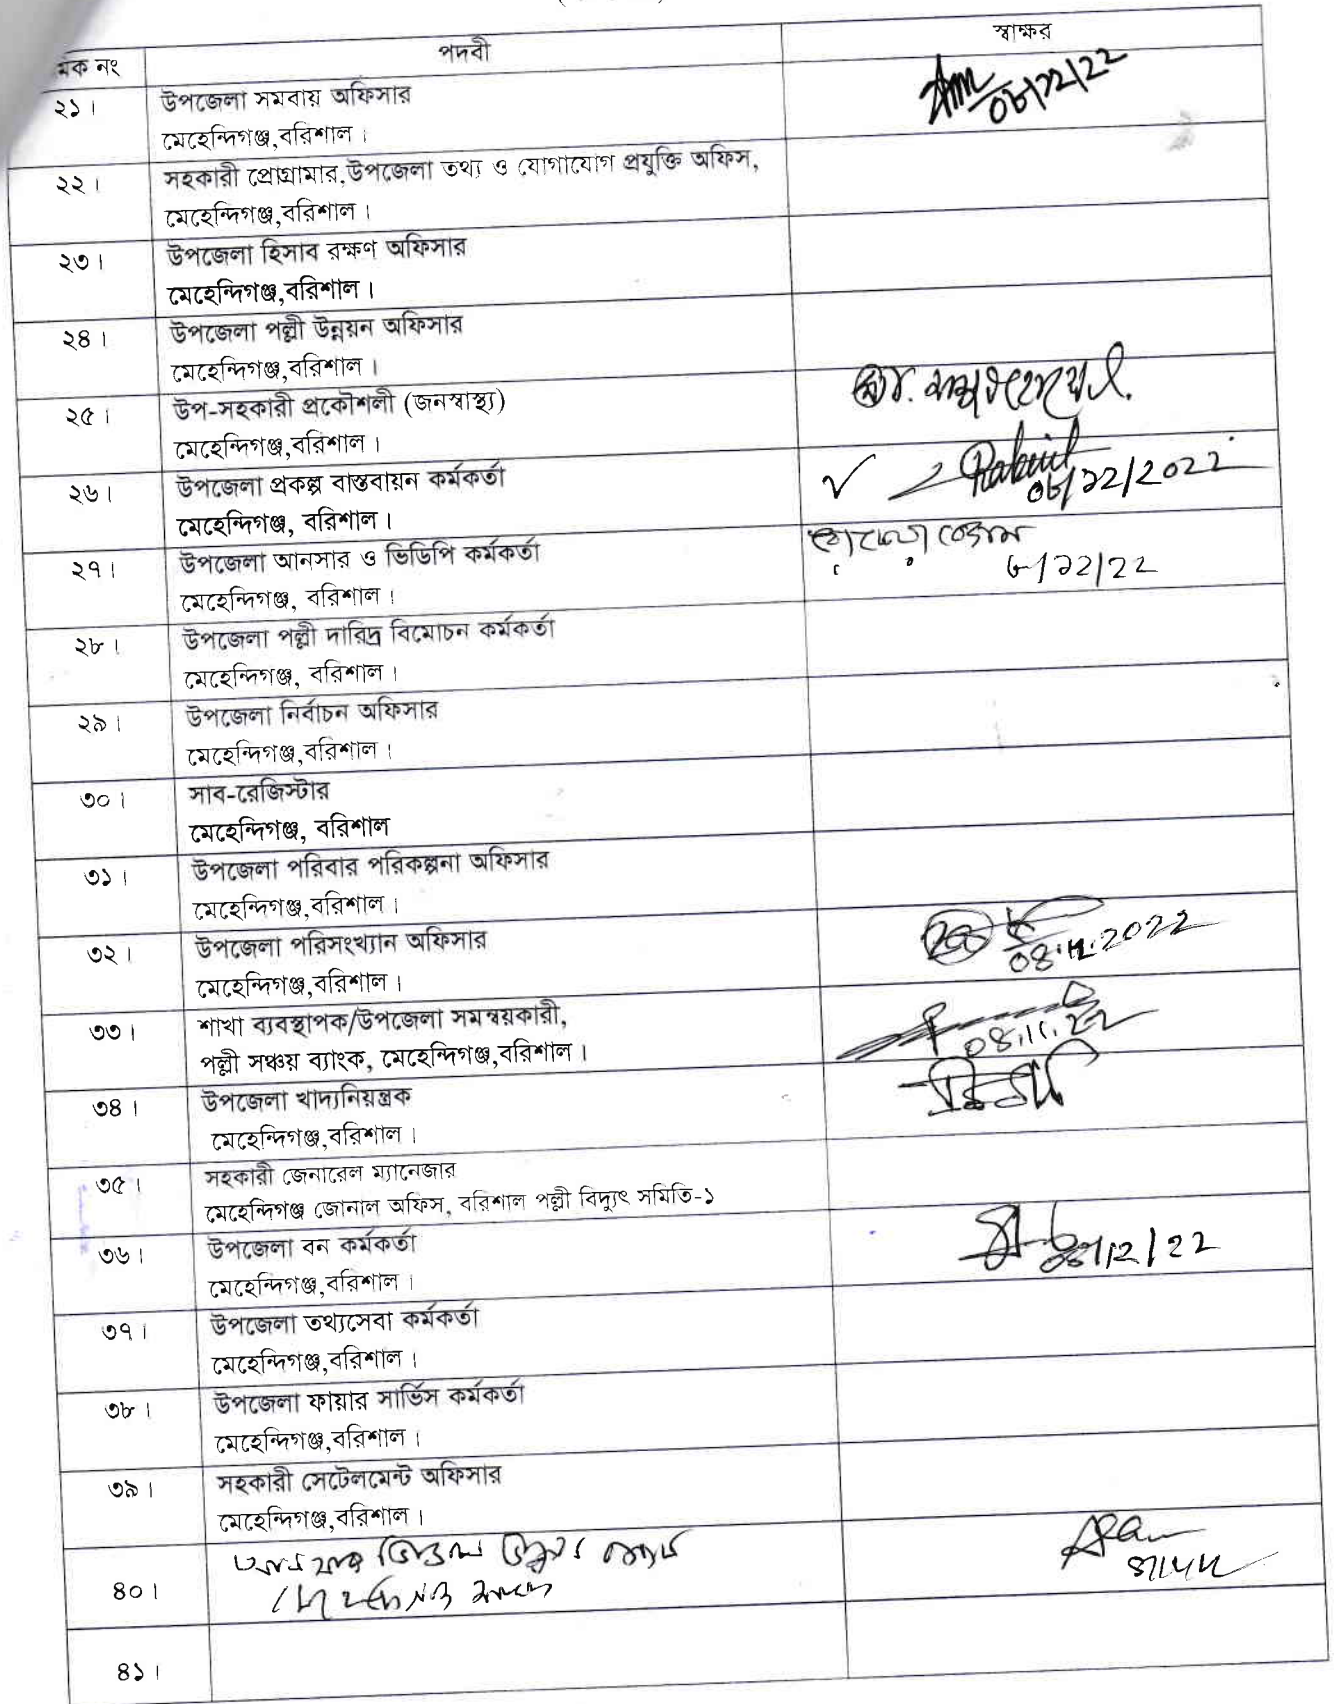 মক নং পদবী স্বাক্ষর
২১। উপজেলা সমবায় অফিসার
মেহেন্দিগঞ্জ,বরিশাল।
২২। সহকারী প্রোগ্রামার,উপজেলা তথ্য ও যোগাযোগ প্রযুক্তি অফিস,
মেহেন্দিগঞ্জ,বরিশাল।
২৩। উপজেলা হিসাব রক্ষণ অফিসার
মেহেন্দিগঞ্জ,বরিশাল।
২৪। উপজেলা পল্লী উন্নয়ন অফিসার
মেহেন্দিগঞ্জ,বরিশাল।
২৫। উপ-সহকারী প্রকৌশলী (জনস্বাস্থ্য)
মেহেন্দিগঞ্জ,বরিশাল।
২৬। উপজেলা প্রকল্প বাস্তবায়ন কর্মকর্তা
মেহেন্দিগঞ্জ, বরিশাল।
২৭। উপজেলা আনসার ও ভিডিপি কর্মকর্তা
মেহেন্দিগঞ্জ, বরিশাল।
২৮। উপজেলা পল্লী দারিদ্র বিমোচন কর্মকর্তা
মেহেন্দিগঞ্জ, বরিশাল।
২৯। উপজেলা নির্বাচন অফিসার
মেহেন্দিগঞ্জ,বরিশাল।
৩০। সাব-রেজিস্টার
মেহেন্দিগঞ্জ, বরিশাল
৩১। উপজেলা পরিবার পরিকল্পনা অফিসার
মেহেন্দিগঞ্জ,বরিশাল।
৩২। উপজেলা পরিসংখ্যান অফিসার 08.11.2022
মেহেন্দিগঞ্জ,বরিশাল।
৩৩। শাখা ব্যবস্থাপক/উপজেলা সমন্বয়কারী, 08.11.22
পল্লী সঞ্চয় ব্যাংক, মেহেন্দিগঞ্জ,বরিশাল।
৩৪। উপজেলা খাদ্যনিয়ন্ত্রক
মেহেন্দিগঞ্জ,বরিশাল।
৩৫। সহকারী জেনারেল ম্যানেজার
মেহেন্দিগঞ্জ জোনাল অফিস, বরিশাল পল্লী বিদ্যুৎ সমিতি-১
৩৬। উপজেলা বন কর্মকর্তা
মেহেন্দিগঞ্জ,বরিশাল।
৩৭। উপজেলা তথ্যসেবা কর্মকর্তা
মেহেন্দিগঞ্জ,বরিশাল।
৩৮। উপজেলা ফায়ার সার্ভিস কর্মকর্তা
মেহেন্দিগঞ্জ,বরিশাল।
৩৯। সহকারী সেটেলমেন্ট অফিসার
মেহেন্দিগঞ্জ,বরিশাল।
৪০।
৪১।